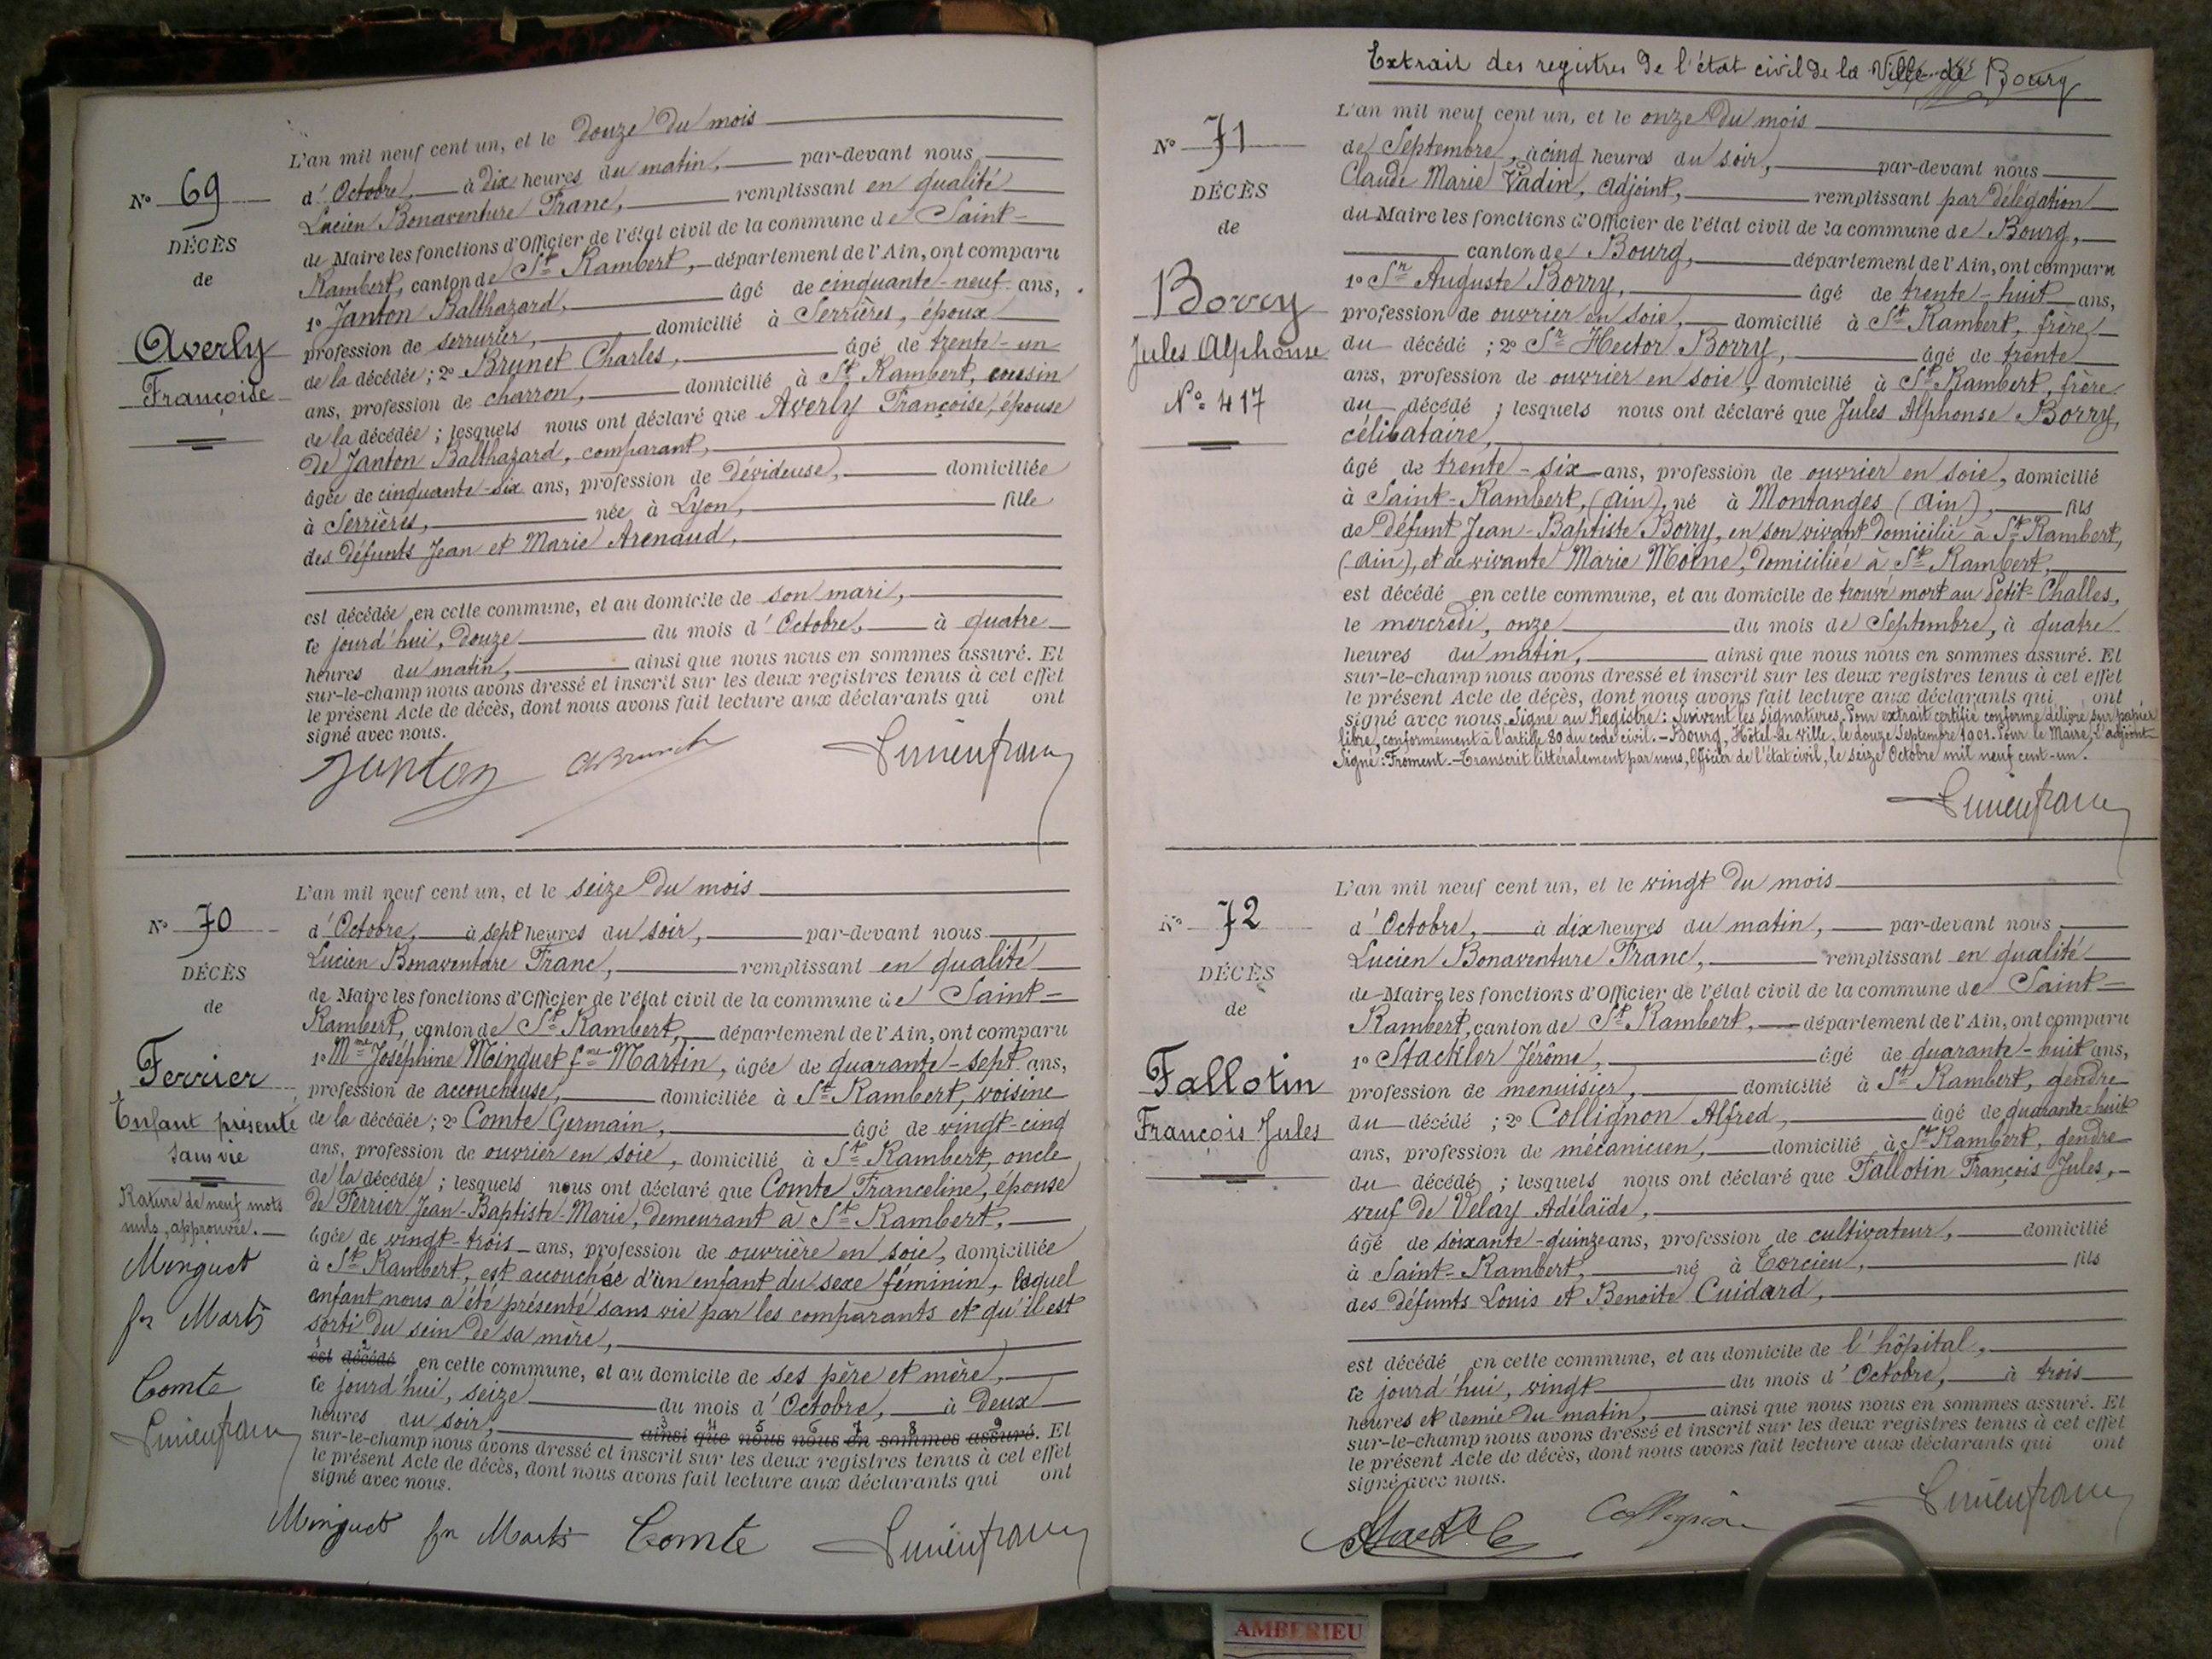 L'an mil neuf cent un, et le douze du mois
N° 69
d'Octobre, à dix heures du matin, par-devant nous
DÉCÈS
Lucien Bonaventure Franc, remplissant en qualité
de
de Maire les fonctions d'Officier de l'état civil de la commune de Saint-
Rambert, canton de St Rambert, département de l'Ain, ont comparu
Averly
1° Janton Balthazard, âgé de cinquante-neuf ans,
Françoise
profession de serrurier, domicilié à Serrières, époux
de la décédée ; 2° Brunet Charles, âgé de trente-un
ans, profession de charron, domicilié à St Rambert, cousin
de la décédée ; lesquels nous ont déclaré que Averly Françoise, épouse
de Janton Balthazard, comparant,
âgée de cinquante-six ans, profession de dévideuse, domiciliée
à Serrières, née à Lyon, fille
des défunts Jean et Marie Arenaud,
est décédée en cette commune, et au domicile de son mari,
ce jourd'hui, douze du mois d'Octobre, à quatre
heures du matin, ainsi que nous nous en sommes assuré. Et
sur-le-champ nous avons dressé et inscrit sur les deux registres tenus à cet effet
le présent Acte de décès, dont nous avons fait lecture aux déclarants qui ont
signé avec nous.
Janton Ch Brunet Lucien franc
L'an mil neuf cent un, et le seize du mois
N° 70
d'Octobre, à sept heures du soir, par-devant nous
DÉCÈS
Lucien Bonaventure Franc, remplissant en qualité
de
de Maire les fonctions d'Officier de l'état civil de la commune de Saint-
Rambert, canton de St Rambert, département de l'Ain, ont comparu
Ferrier
1° Mme Joséphine Minguet fme Martin, âgée de quarante-sept ans,
profession de accoucheuse, domiciliée à St Rambert, voisine
Enfant présenté
de la décédée ; 2° Comte Germain, âgé de vingt-cinq
sans vie
ans, profession de ouvrier en soie, domicilié à St Rambert, oncle
de la décédée ; lesquels nous ont déclaré que Comte Franceline, épouse
Rature de neuf mots
de Ferrier Jean-Baptiste-Marie, demeurant à St Rambert,
nuls, approuvée.
âgée de vingt-trois ans, profession de ouvrière en soie, domiciliée
Minguet
à St Rambert, est accouchée d'un enfant du sexe féminin, lequel
enfant nous a été présenté sans vie par les comparants et qu'il est
fe Martin
sorti du sein de sa mère,
1 2
est décédé en cette commune, et au domicile de ses père et mère,
Comte
ce jourd'hui, seize du mois d'Octobre, à deux
Lucien franc
3 4 5 6 7 8 9
heures du soir, ainsi que nous nous en sommes assuré. Et
sur-le-champ nous avons dressé et inscrit sur les deux registres tenus à cet effet
le présent Acte de décès, dont nous avons fait lecture aux déclarants qui ont
signé avec nous.
Minguet fe Martin Comte Lucien franc
Extrait des registres de l'état civil de la Ville de Bourg
L'an mil neuf cent un, et le onze du mois
N° 71
de Septembre, à cinq heures du soir, par-devant nous
DÉCÈS
Claude Marie Vadin, adjoint, remplissant par délégation
de
du Maire les fonctions d'Officier de l'état civil de la commune de Bourg,
canton de Bourg, département de l'Ain, ont comparu
Borry
1° Sr Auguste Borry, âgé de trente-huit ans,
profession de ouvrier en soie, domicilié à St Rambert, frère
Jules Alphonse
du décédé ; 2° Sr Hector Borry, âgé de trente
ans, profession de ouvrier en soie, domicilié à St Rambert, frère
N° 417
du décédé ; lesquels nous ont déclaré que Jules Alphonse Borry,
célibataire,
âgé de trente-six ans, profession de ouvrier en soie, domicilié
à Saint-Rambert, (Ain), né à Montanges (Ain), fils
de défunt Jean-Baptiste Borry, en son vivant domicilié à St Rambert,
(Ain), et de vivante Marie Moine, domiciliée à St Rambert,
est décédé en cette commune, et au domicile de trouvé mort au Petit-Challes,
le mercredi, onze du mois de Septembre, à quatre
heures du matin, ainsi que nous nous en sommes assuré. Et
sur-le-champ nous avons dressé et inscrit sur les deux registres tenus à cet effet
le présent Acte de décès, dont nous avons fait lecture aux déclarants qui ont
signé avec nous. Signé au Registre : Suivent les signatures. Pour extrait certifié conforme délivré sur papier
libre, conformément à l'article 80 du code civil. - Bourg, Hôtel de Ville, le douze Septembre 1901. Pour le Maire, L'adjoint
Signé : Froment. - Transcrit littéralement par nous, Officier de l'état civil, le seize Octobre mil neuf cent-un.
Lucien franc
L'an mil neuf cent un, et le vingt du mois
N° 72
d'Octobre, à dix heures du matin, par-devant nous
Lucien Bonaventure Franc, remplissant en qualité
DÉCÈS
de Maire les fonctions d'Officier de l'état civil de la commune de Saint-
de
Rambert, canton de St Rambert, département de l'Ain, ont comparu
1° Stackler Jérôme, âgé de quarante-huit ans,
Fallotin
profession de menuisier, domicilié à St Rambert, gendre
François Jules
du décédé ; 2° Collignon Alfred, âgé de quarante-huit
ans, profession de mécanicien, domicilié à St Rambert, gendre
du décédé ; lesquels nous ont déclaré que Fallotin François Jules,
veuf de Velay Adélaïde,
âgé de soixante-quinze ans, profession de cultivateur, domicilié
à Saint-Rambert, né à Torcieu, fils
des défunts Louis et Benoite Cuidard,
est décédé en cette commune, et au domicile de l'hôpital,
ce jourd'hui, vingt du mois d'Octobre, à trois
heures et demie du matin, ainsi que nous nous en sommes assuré. Et
sur-le-champ nous avons dressé et inscrit sur les deux registres tenus à cet effet
le présent Acte de décès, dont nous avons fait lecture aux déclarants qui ont
signé avec nous.
Collignon Lucien franc
AMBERIEU